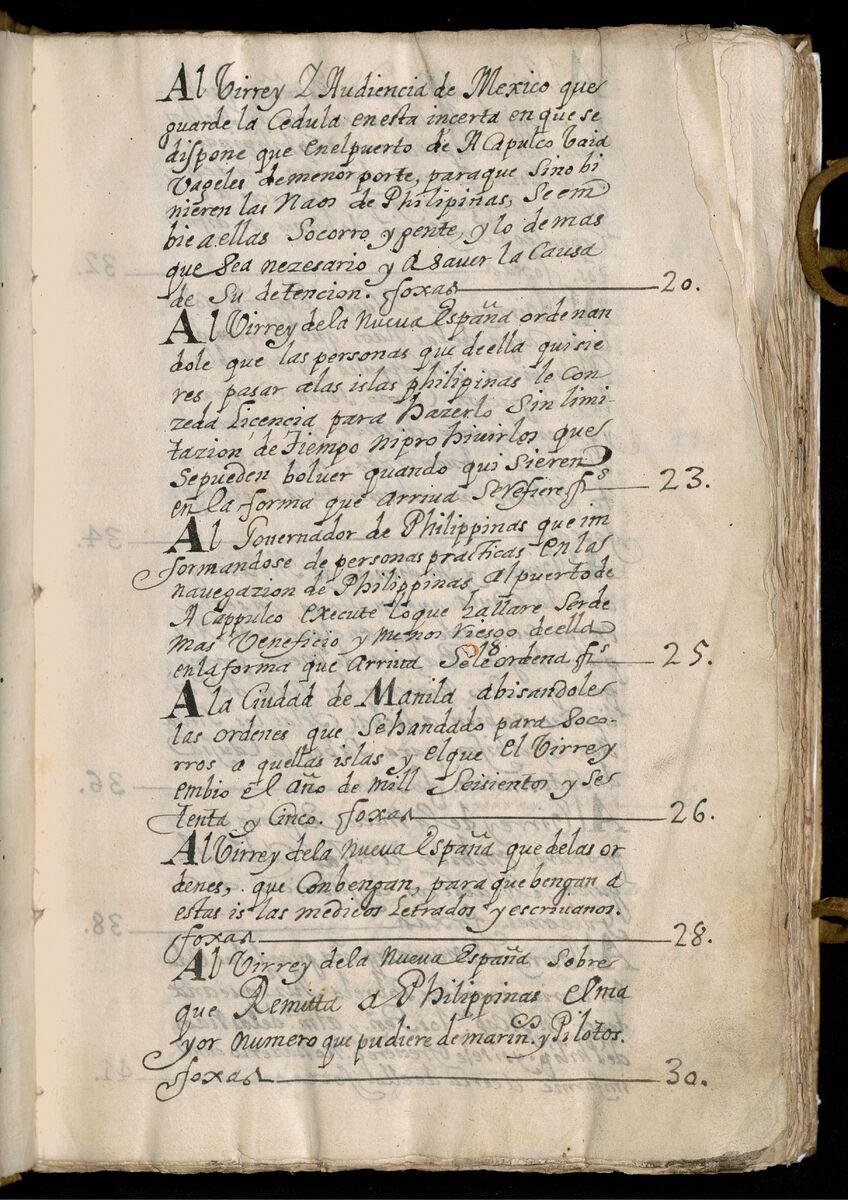 Al Virrey Y Audiencia de Mexico que
guarde la Cedula en esta incerta en que se
dispone que en el puerto de ACapulco baia
Vageles de menor porte, para que sino bi
nieren las Naos de Philipinas, se em
bie a ellas Socorro y gente, y lo demas
que Sea nezesario y a saver la Causa
de Su detencion. foxas 20.
Al Virrey de la Nueva España ordenan
dole que las personas que de ella quisie
res pasar a las islas philipinas le Con
zeda Licencia para hazerlo sin limi-
tazion de Tiempo ni prohivirlos que
Se pueden bolver quando quisieren
en la forma que arriva Se refiere fs 23.
Al Governador de Philippinas que im
formandose de personas prácticas en las
navegazion de Philippinas al puerto de
ACappulco execute lo que hallare Ser de
mas Veneficio y menos riesgo de ella
18
en la forma que arriva Se le ordena fs 25.
A la Ciudad de Manila abisandoles
las ordenes que Se han dado para Soco-
rros a quellas islas y el que el Virrey
embio el Año de mill Seisientos y Se
tenta y Cinco. foxas 26.
Al Virrey de la Nueva España que de las or
denes, que Conbengan, para que bengan a
estas islas medicos Letrados y escrivanos.
foxas 28.
Al Virrey de la Nueva España Sobre
que Remitta a Philippinas el ma
yor numero que pudiere de marin.os y Pilotos.
foxas 30.